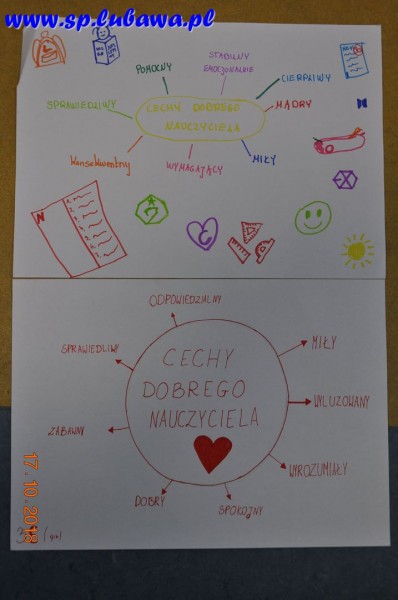 www.sp.lubawa.pl
POMOCNY
STABILNY
EMOCJONALNIE
CIERPLIWY
SPRAWIEDLIWY
CECHY DOBREGO
NAUCZYCIELA
MĄDRY
Konsekwentny
WYMAGAJĄCY
MIŁY
N
ODPOWIEDZIALNY
SPRAWIEDLIWY
MIŁY
CECHY
DOBREGO
NAUCZYCIELA
WYLUZOWANY
ZABAWNY
WYROZUMIAŁY
DOBRY
SPOKOJNY
17.10.2018